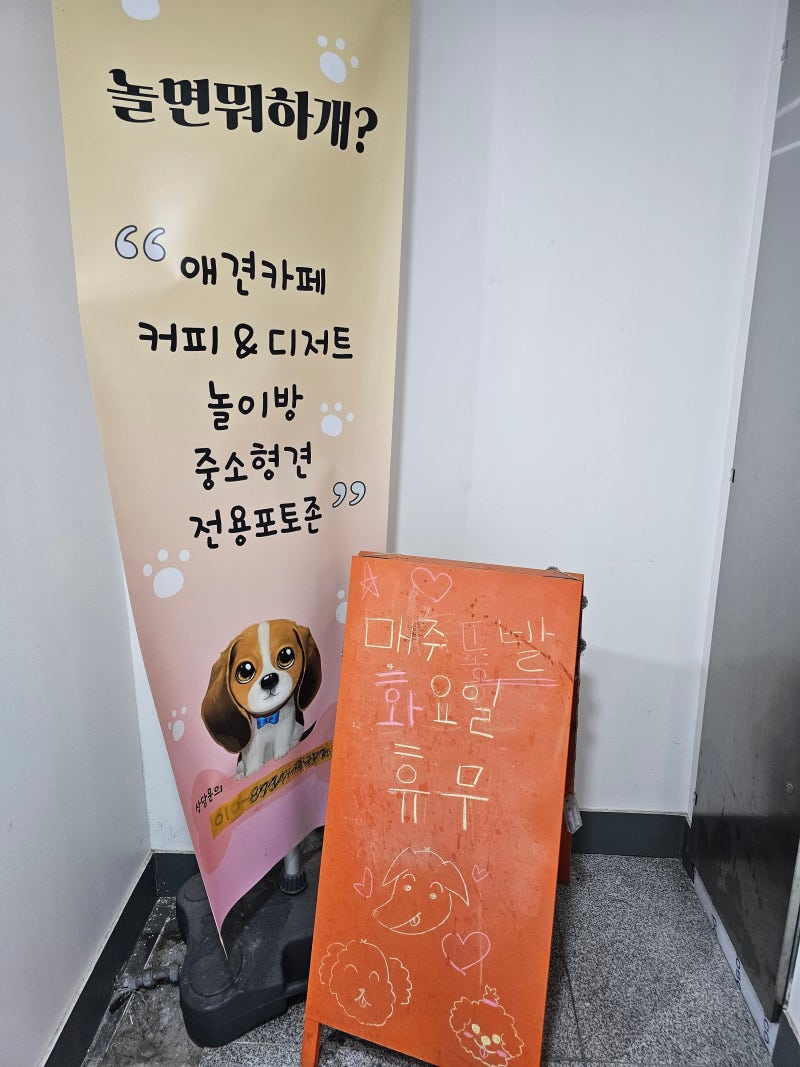 놀면뭐하개?
“애견카페
커피 & 디저트
놀이방
중소형견
전용포토존”
상담문의
매주
화요일
휴무